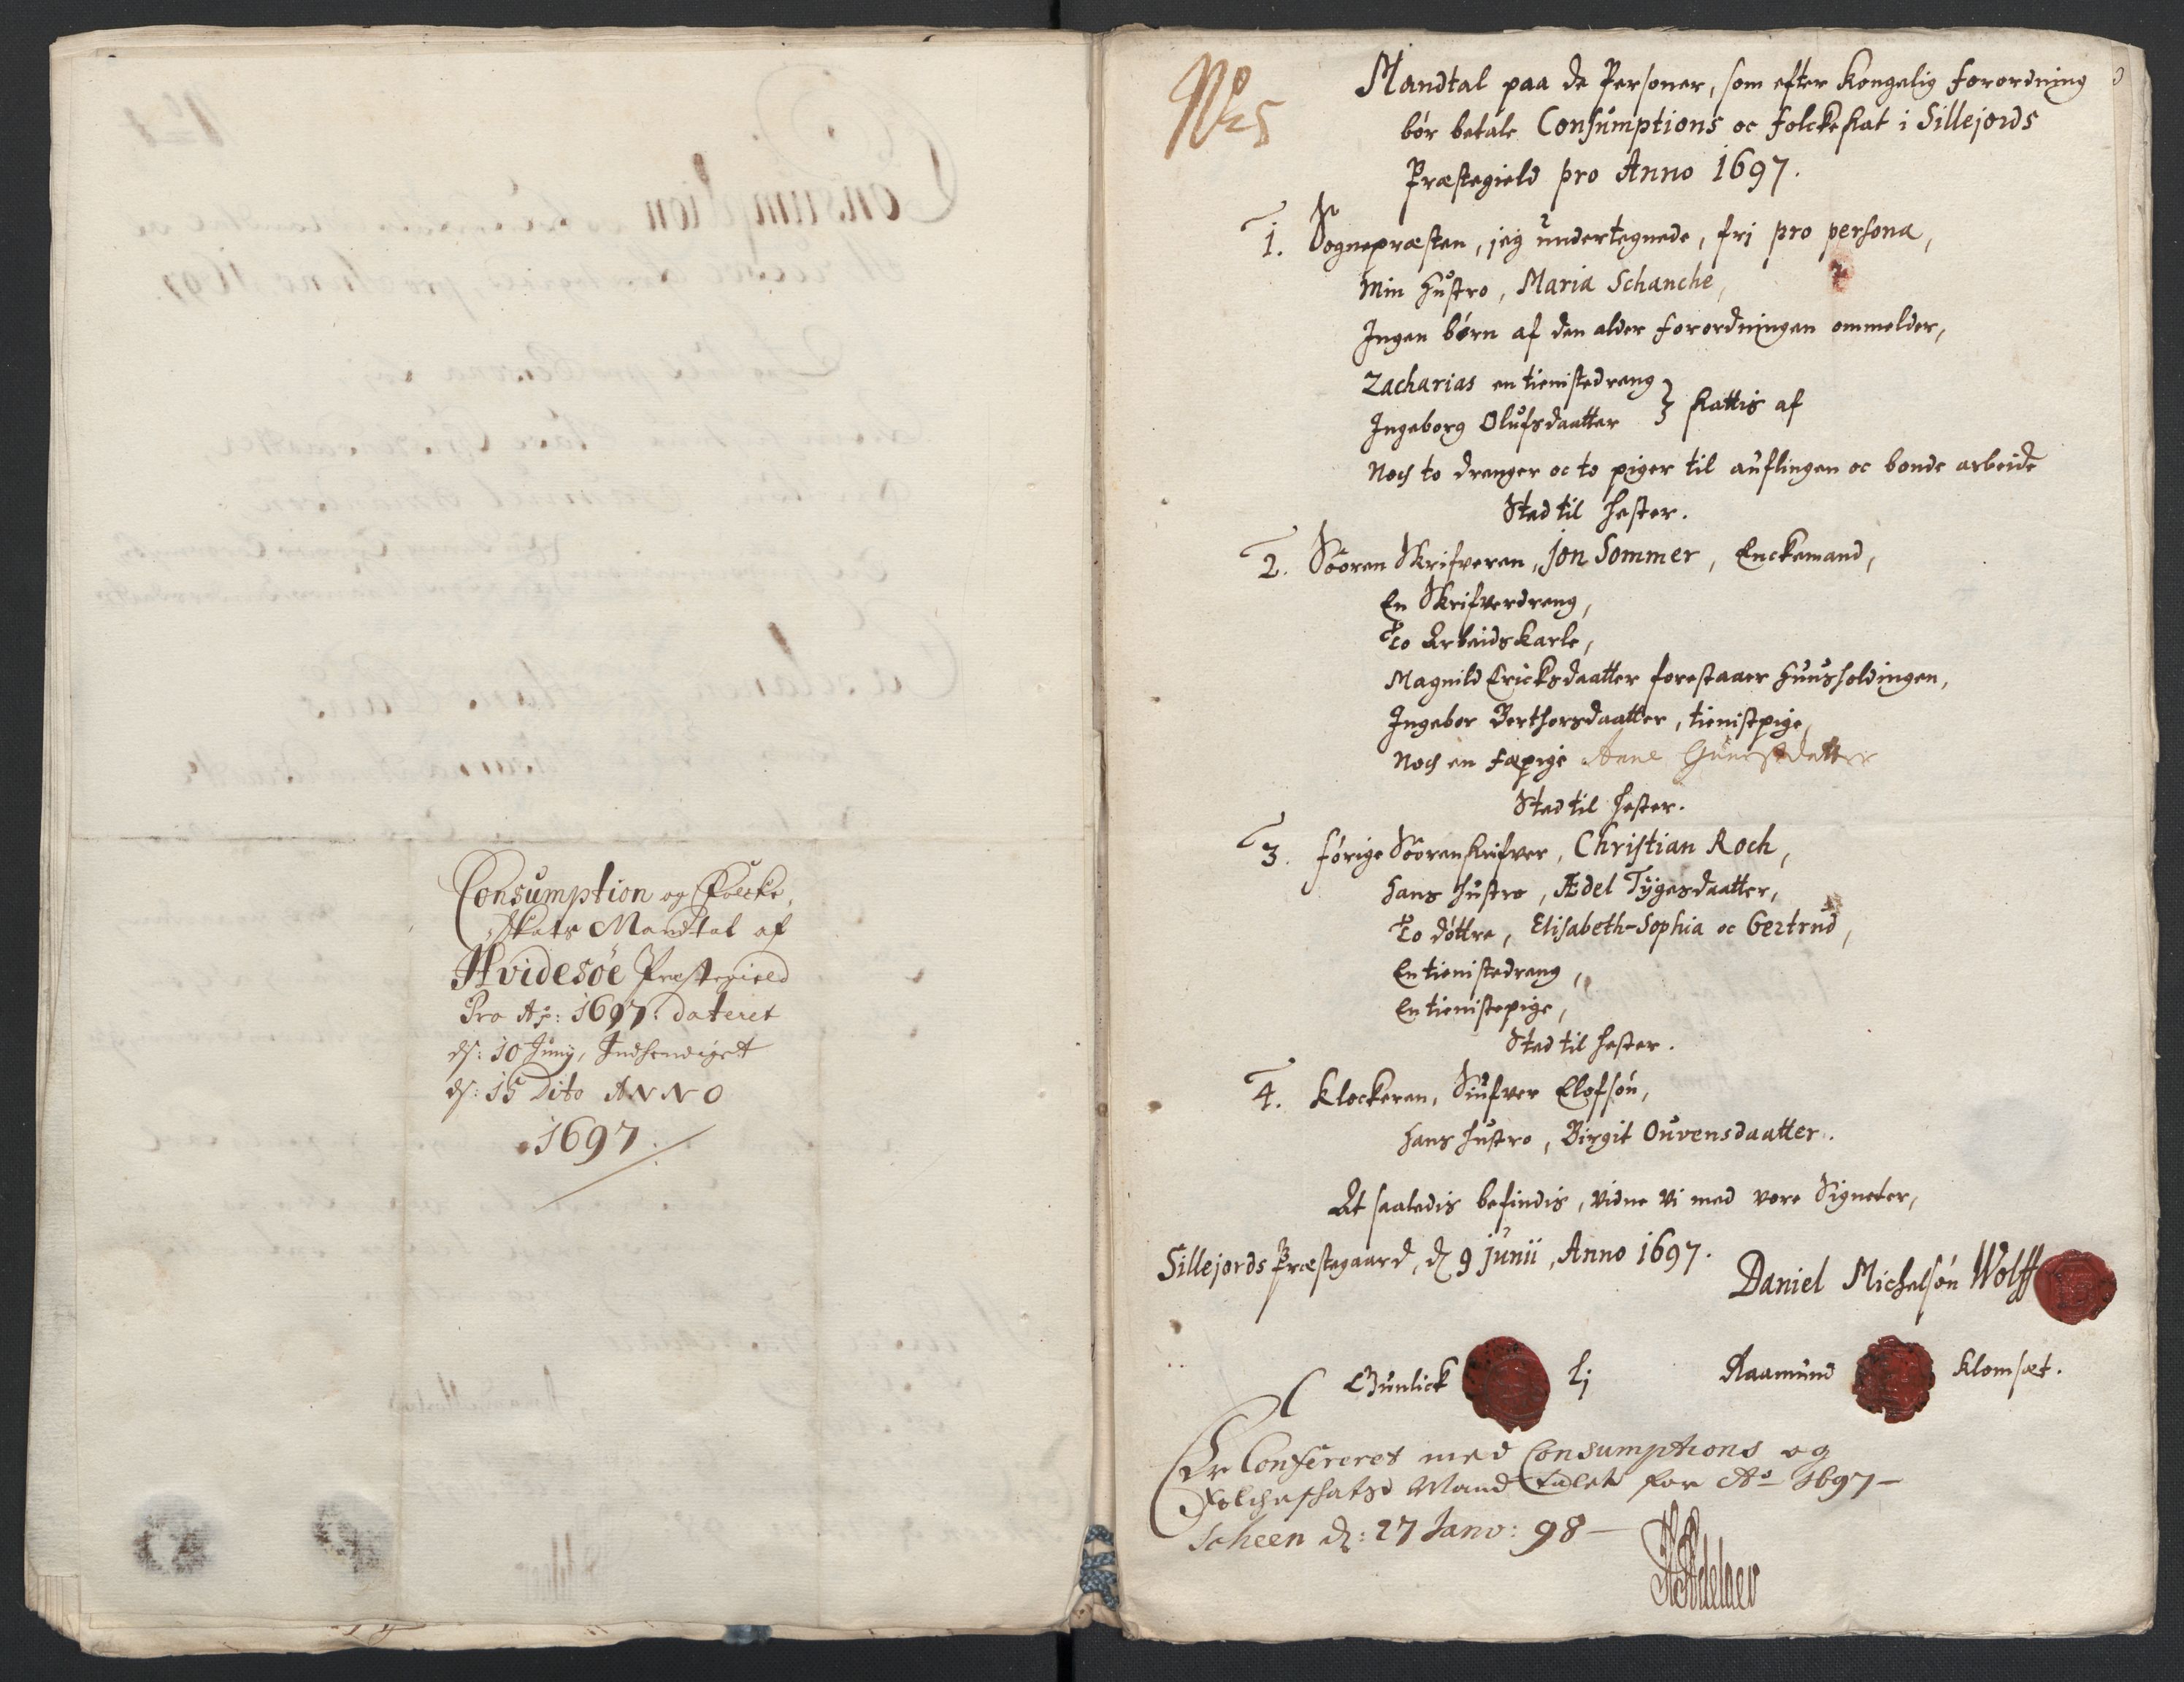 Consumption og Folcke,
Skats Mandtal af
Hvidesøe Præstegield
Pro Ao: 1697. dateret
d: 10 Junij, Indhendiget
d: 15 Dito ANNO
1697.
No 5
Mandtal paa de Personer, som efter Kongelig forordning
bör betale Consumptions oc folckeskat i Sillejords
Præstegield pro Anno 1697.
1. Sognepræsten, jeg undertegnede, frj pro persona,
Min Hustro, Maria Schanche,
Ingen börn af den alder forordningen ommelder,
Zacharias en tienistedreng
Ingeborg Olufsdaatter } skattis af
Noch to drenger oc to piger til auflingen oc bonde arbeide
Sted til Hester.
2. Sooren Skrifveren, Jon Sommer, Enckemand,
En Skrifverdreng,
To Arbeidskarle,
Magnild Ericksdaatter forestaaer Huusholdingen,
Ingebor Berthorsdaatter, tienistpige,
Noch en fæpige Anne
Sted til Hester.
3. förige Soorenskrifver, Christian Roch,
Hans Hustro, Ædel Tygesdaatter,
To döttre, Elisabeth-Sophia oc Gertrud,
En tienistedreng,
En tienistepige,
Sted til Hester.
4. Klockeren, Siufver Elofsön,
Hans Hustro, Birgit Ouvensdaatter.
At saaledis befindis, vidne vi med vore Signeter,
Sillejords Præstegaard, d 9 Junii, Anno 1697.
Daniel Michelsön Wolff
Gunlick Lj
Aamund Klomset.
Er Confereret med Consumptions og
Folcheschatts Mandtallet for Ao 1697
Scheen d: 27 Janv: 98
HAdelaer